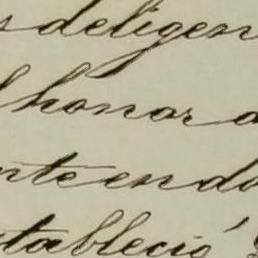 s deligen
l honor a
nte en do
stableció